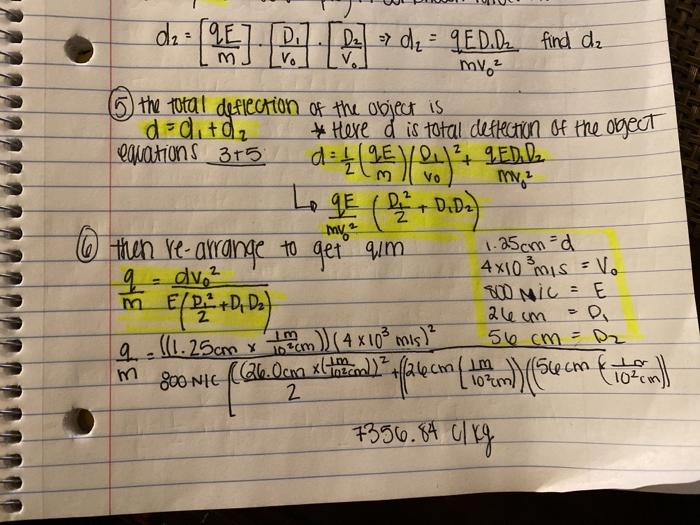 d₂ = [qE/m] · [D₁/V₀] · [D₂/V₀] ⇒ d₂ = qED₁D₂/mv₀² find d₂
⑤ the total deflection of the object is
d = d₁ + d₂ * Here d is total deflection of the object
equations 3+5 d = 1/2 (qE/m)(D₁/V₀)² + qED₁D₂/mv₀²
↳ qE/mv₀² (D₁²/2 + D₁D₂)
⑥ then re-arrange to get q/m
1.25cm = d
4×10³ m/s = V₀
800 N/C = E
26 cm = D₁
56 cm = D₂
q/m = dv₀²/E(D₁²/2 + D₁D₂)
q/m = ((1.25cm × 1m/10²cm))(4×10³ m/s)²/800 N/C [((26.0cm × (1m/10²cm))²/2 + ((26cm (1m/10²cm))((56cm (1m/10²cm))
7356.84 C/kg